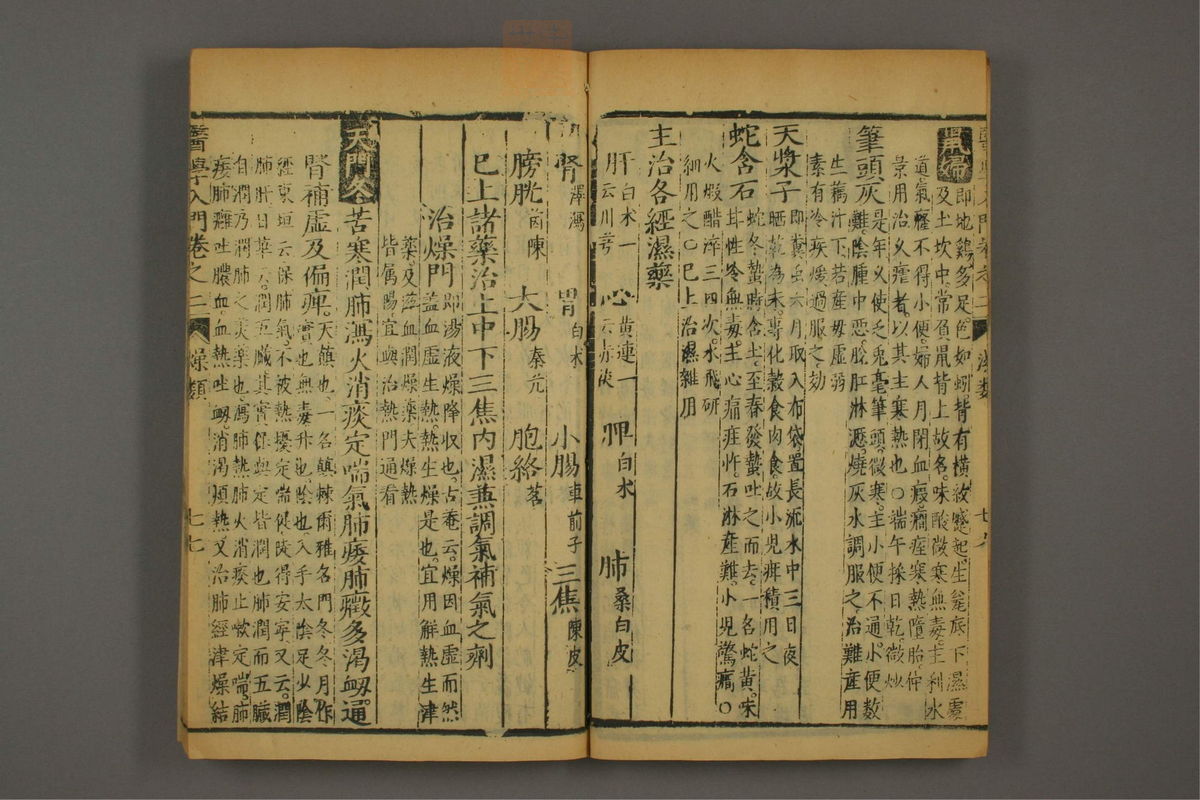 鼠婦
即地鷄多足色如蚓背有橫紋蹙起生甕底下濕處
及土坎中常負鼠背上故名味酸微寒無毒主利水
道氣癃不得小便婦人月閉血瘕癎痓寒熱墮胎仲
景用治久瘧者以其主寒熱也○端午採日乾微炒
筆頭灰
是年久使乏兔毫筆頭微寒主小便不通小便數
難陰腫中惡脫肛淋瀝燒灰水調服之治難產用
生藕汁下若產母虛弱
素有冷疾煖過服之効
天漿子
即糞虫六月取入布袋置長流水中三日夜
晒乾為末專化穀食肉食故小兒疳積用之
蛇含石
蛇冬蟄時含土至春發蟄吐之而去一名蛇黃味
甘性冷無毒主心痛疰忤石淋產難小兒驚癎○
火煅醋淬三四次水飛研
細用之○已上治濕雜用
主治各經濕藥
肝
白朮一
云川芎
心
黃連一
云赤茯
脾
白朮
肺
桑白皮
腎
澤瀉
胃
白朮
小腸
車前子
三焦
陳皮
膀胱
茵陳
大腸
秦艽
胞絡
茗
已上諸藥治上中下三焦內濕兼調氣補氣之劑
治燥門
即湯液燥降收也古菴云燥因血虛而然
蓋血虛生熱熱生燥是也宜用解熱生津
藥及滋血潤燥藥夫燥熱
皆屬陽宜與治熱門通看
天門冬
苦寒潤肺瀉火消痰定喘氣肺痿肺癰多渴衂通
腎補虛及偏痺
天顛也一名顛棘爾雅名門冬冬月作
實也無毒升也陰也入手太陰足少陰
經東垣云保肺氣不被熱擾定喘促陡得安寧又云潤
肺肝曰華云潤五臟其實保與定皆潤也肺潤而五臟
自潤乃潤肺之美藥也瀉肺熱肺火消痰止嗽定喘肺
痿肺癰吐膿血血熱吐衂消渴煩熱又治肺經津燥結
醫學入門卷之二
燥類
七七